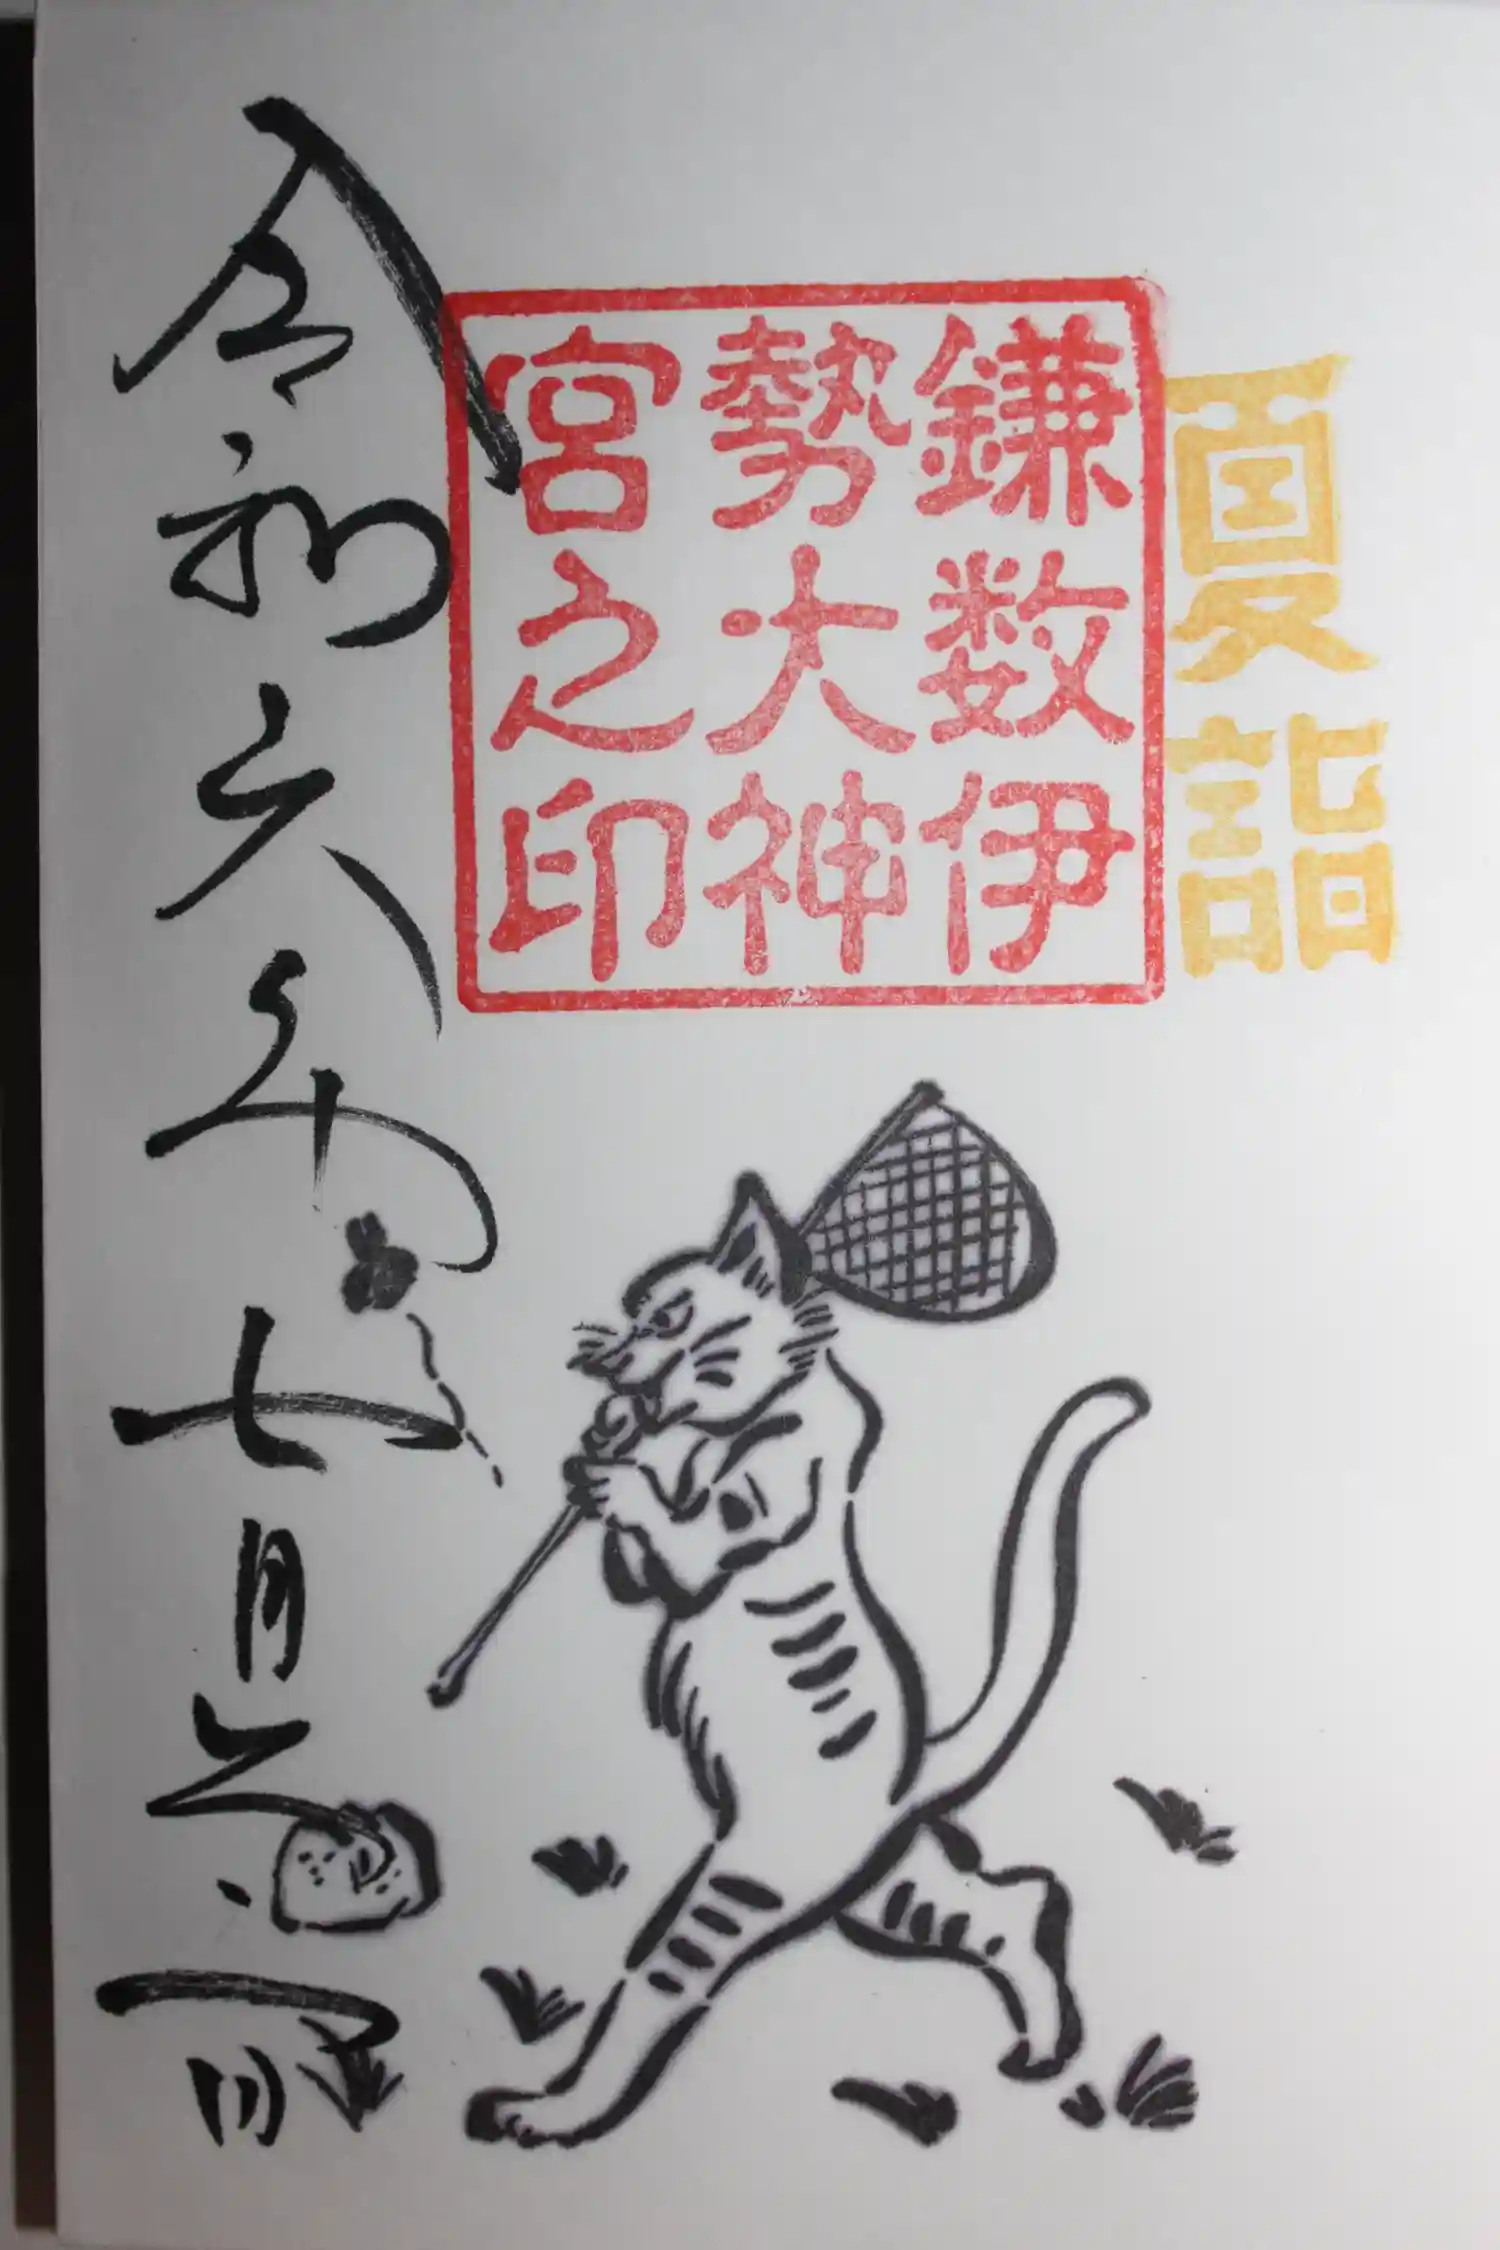 夏詣
鎌数伊
勢大神
宮之印
令和六年七月